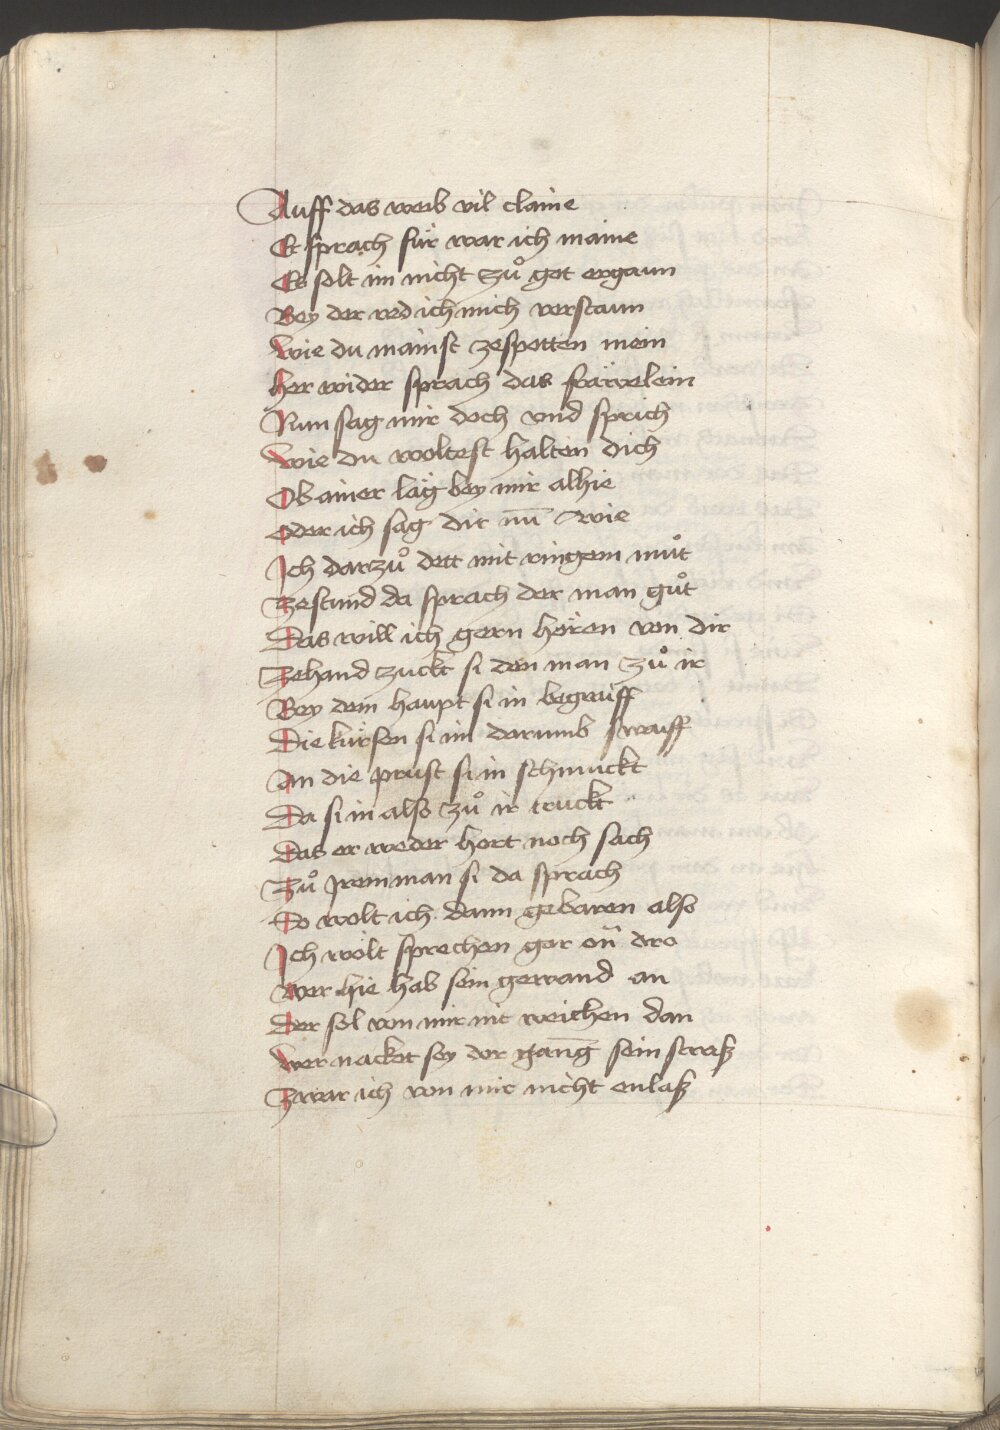 Auff das weib vil claine
Er sprach für war ich maine
Es solt im nicht zuͦ got ergaun
Bey der red ich mich verstaun
Wie du mainst zespotten mein
Her wider sprach das fräwelein
Nun sag mir doch vnd sprich
Wie du woltest halten dich
Ob ainer läg bey mir alhie
Oder ich sag dir nū wie
Ich darzuͦ dett mit ringem muͦt
Zestund da sprach der man guͦt
Das will ich gern hören von dir
Zehand zuckt si den man zuͦ ir
Bey dem haupt si in begraiff
Die kürsen si im darumb swaiff
An die prust si in schmuckt
Da si in also zuͦ ir truckt
Das er weder hort noch sach
Zuͦ jrem man si da sprach
So wolt ich dann gebaren also
Ich wölt sprechen gar on̄ dro
Wer hie hab sein gewand an
Der sol von mir nit weichen dan
Wer nacket sey der ganḡ sein straß
Zwar ich von mir nicht enlaß